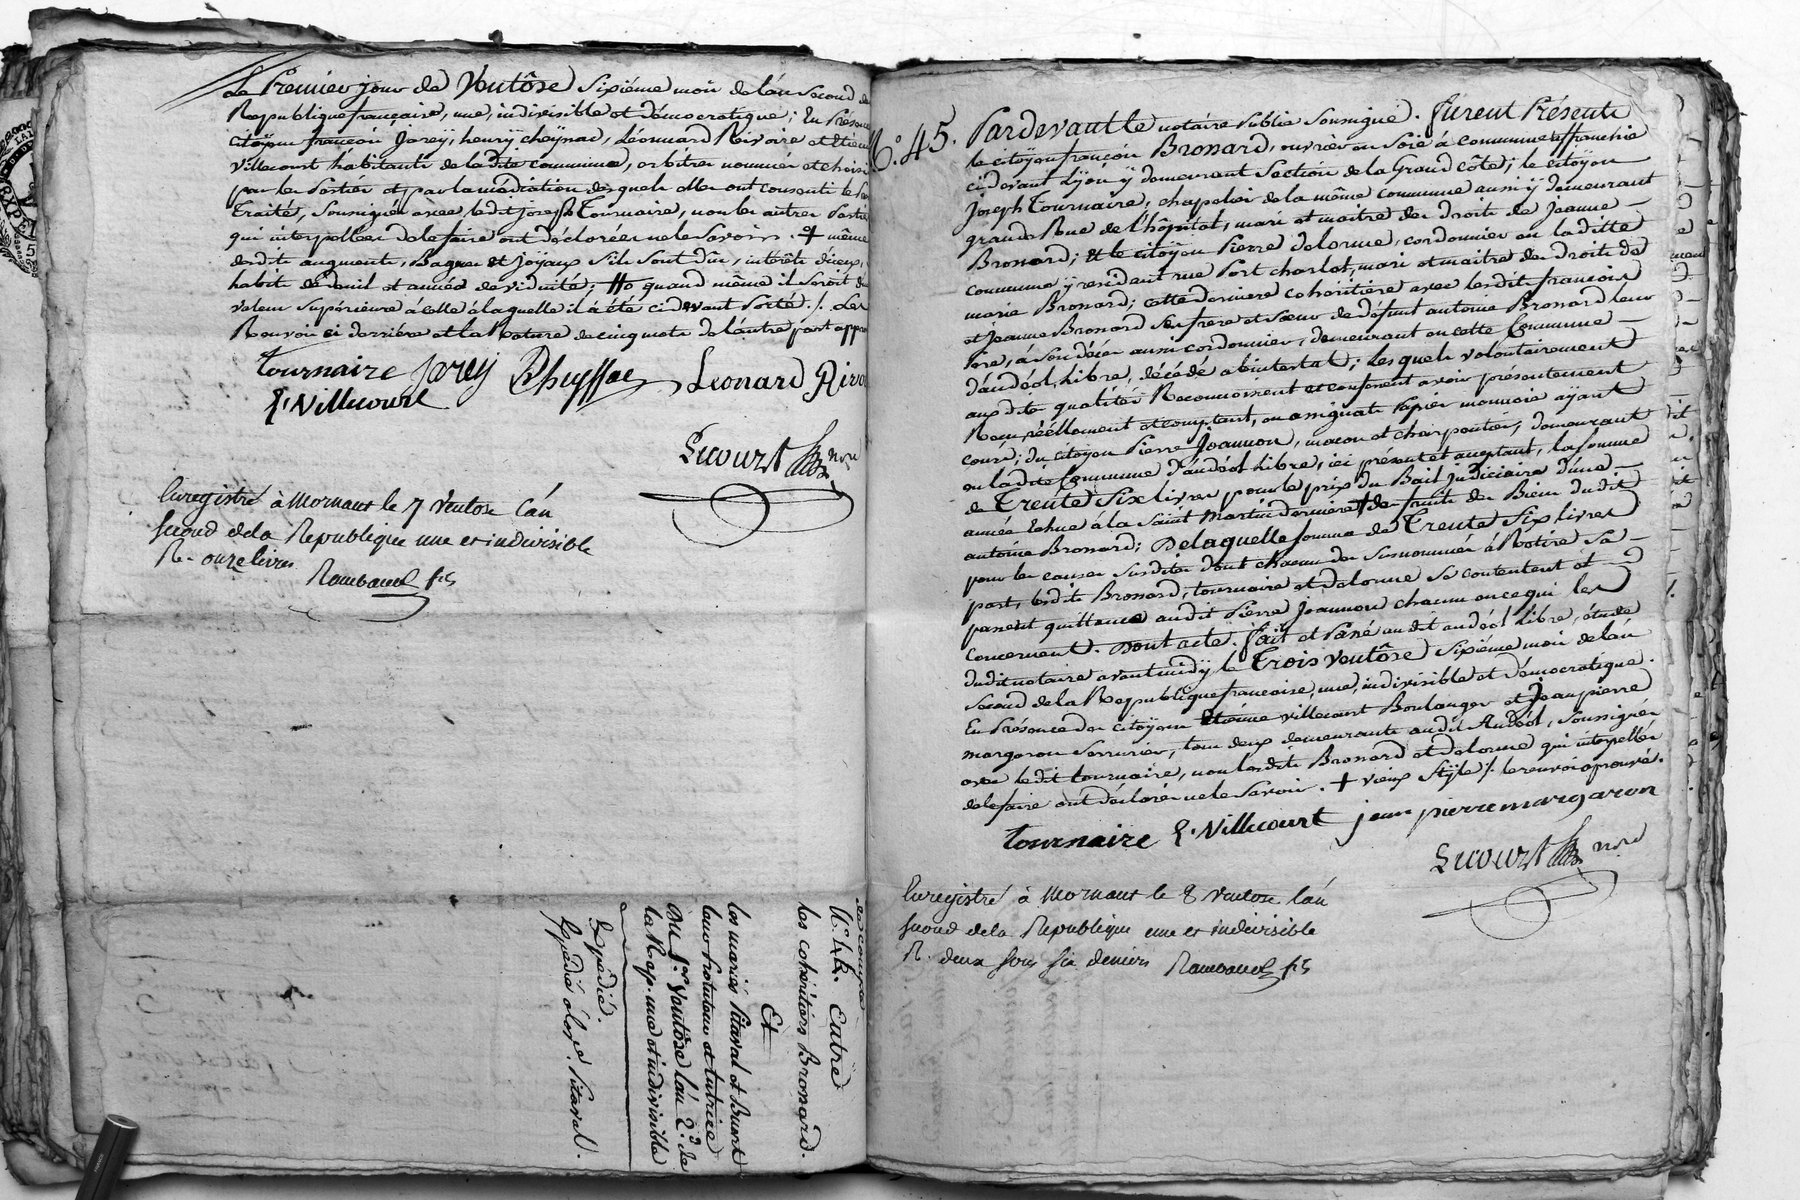 Le Premier jour de Ventôse Sixiéme mois de lán Second de
Republique françaire, une, indivisible et démocratique; En présence
citoÿens françois Jareÿ, henrÿ cheÿssac, Léonnard Rivoire et Etienne
Villecourt hábitants de ladite commune, arbitres nommés et choisis
par les Parties et par la médiation desquels elles ont consenti le
Traité, Soussignés avec ledit joseph Tournaire, non les autres Parties
qui interpellées de le faire ont déclarées ne le Savoir. + même
desdits augments, Bagues et joÿaux S'ils sont dus, intérêts d'iceux,
habits de deuil et année de viduité; # quand même il seroit de
valeur Supérieure à celle à laquelle il à été cidevant Porté ./. Les
Renvois ci derriere et la Rature de cinq mots de l'autre part
Tournaire Jareÿ Cheyssac Léonard
E. Villecourt
Lecourt nre
Enregistré à Mornant le 7 Ventose Lán
second dela Republique une et indivisible
R. onze livres
N.° 44. Entre
les cohéritiers Bronard.
Et
les mariés Pitaval et
leur Protuteur et tutrice
Du 1.er Ventôse lán 2.d de
la Rep. une et indivisible
Expédié.
Expédié à Pitaval.
N.° 45. Pardevant le notaire Public Soussigné. furent Présents
le citoÿen françois Bronard, ouvrier en Soie à commune affranchie
cidevant Lÿon ÿ demeurant Section de la Grand côte; le citoÿen
Joseph Tournaire, chapelier de la même commune aussi ÿ demeurant
grande Rue de l'hôpital, mari et maitre des droits de Jeanne
Bronard; et le citoÿen Pierre delorme, cordonnier en la ditte
commune ÿ residant rue Port charlot, mari et maitre des droits de
marie Bronard; cette derniere cohéritière avec lesdits françois
et Jeanne Bronard Ses frere et Sœur de défunt antoine Bronard leur
Pere, à Son décès aussi cordonnier, demeurant en cette Commune
d'andéol Libre, décédé abintestat; lesquels volontairement
auxdites qualités Reconnoissent et confessent avoir présentement
Reçu, réellement et comptant, en assignats Papier monnoie aÿant
cours; du citoÿen Pierre Joannon, maçon et charpentier, demeurant
en ladite commune d'andéol Libre, ici présent et acceptant, la somme
de Trente Six livres pour le prix du Bail judiciaire d'une
année échue à la Saint Martin derniere + des fruits des Biens dudit
antoine Bronard; De laquelle somme de Trente Six livres
pour les causes Susdites dont chacun des Susnommés à Retiré Sa
part, lesdits Bronard, tournaire et delorme Se contentent et
passent quittance audit Pierre Joannon chacun en ce qui les
concernent. Dont acte. fait et Passé audit andéol Libre, étude
dudit notaire avant midÿ le Trois Ventôse Sixiéme mois de lán
Second de la Republique françoise, une, indivisible et démocratique.
En Présence des citoÿens Etienne Villecourt Boulanger et Jean pierre
margaron Serrurier, tous deux demeurants audit Andéol, Soussignés
avec ledit tournaire, non lesdits Bronard et delorme qui interpellés
de le faire ont déclarés ne le Savoir. + vieux Stÿle ./. le renvoi aprouvé.
Tournaire E. Villecourt jean pierre margaron
Lecourt nre
Enregistré à Mornant le 8 Ventose lán
second dela Republique une et indivisible
R. deux sous six deniers